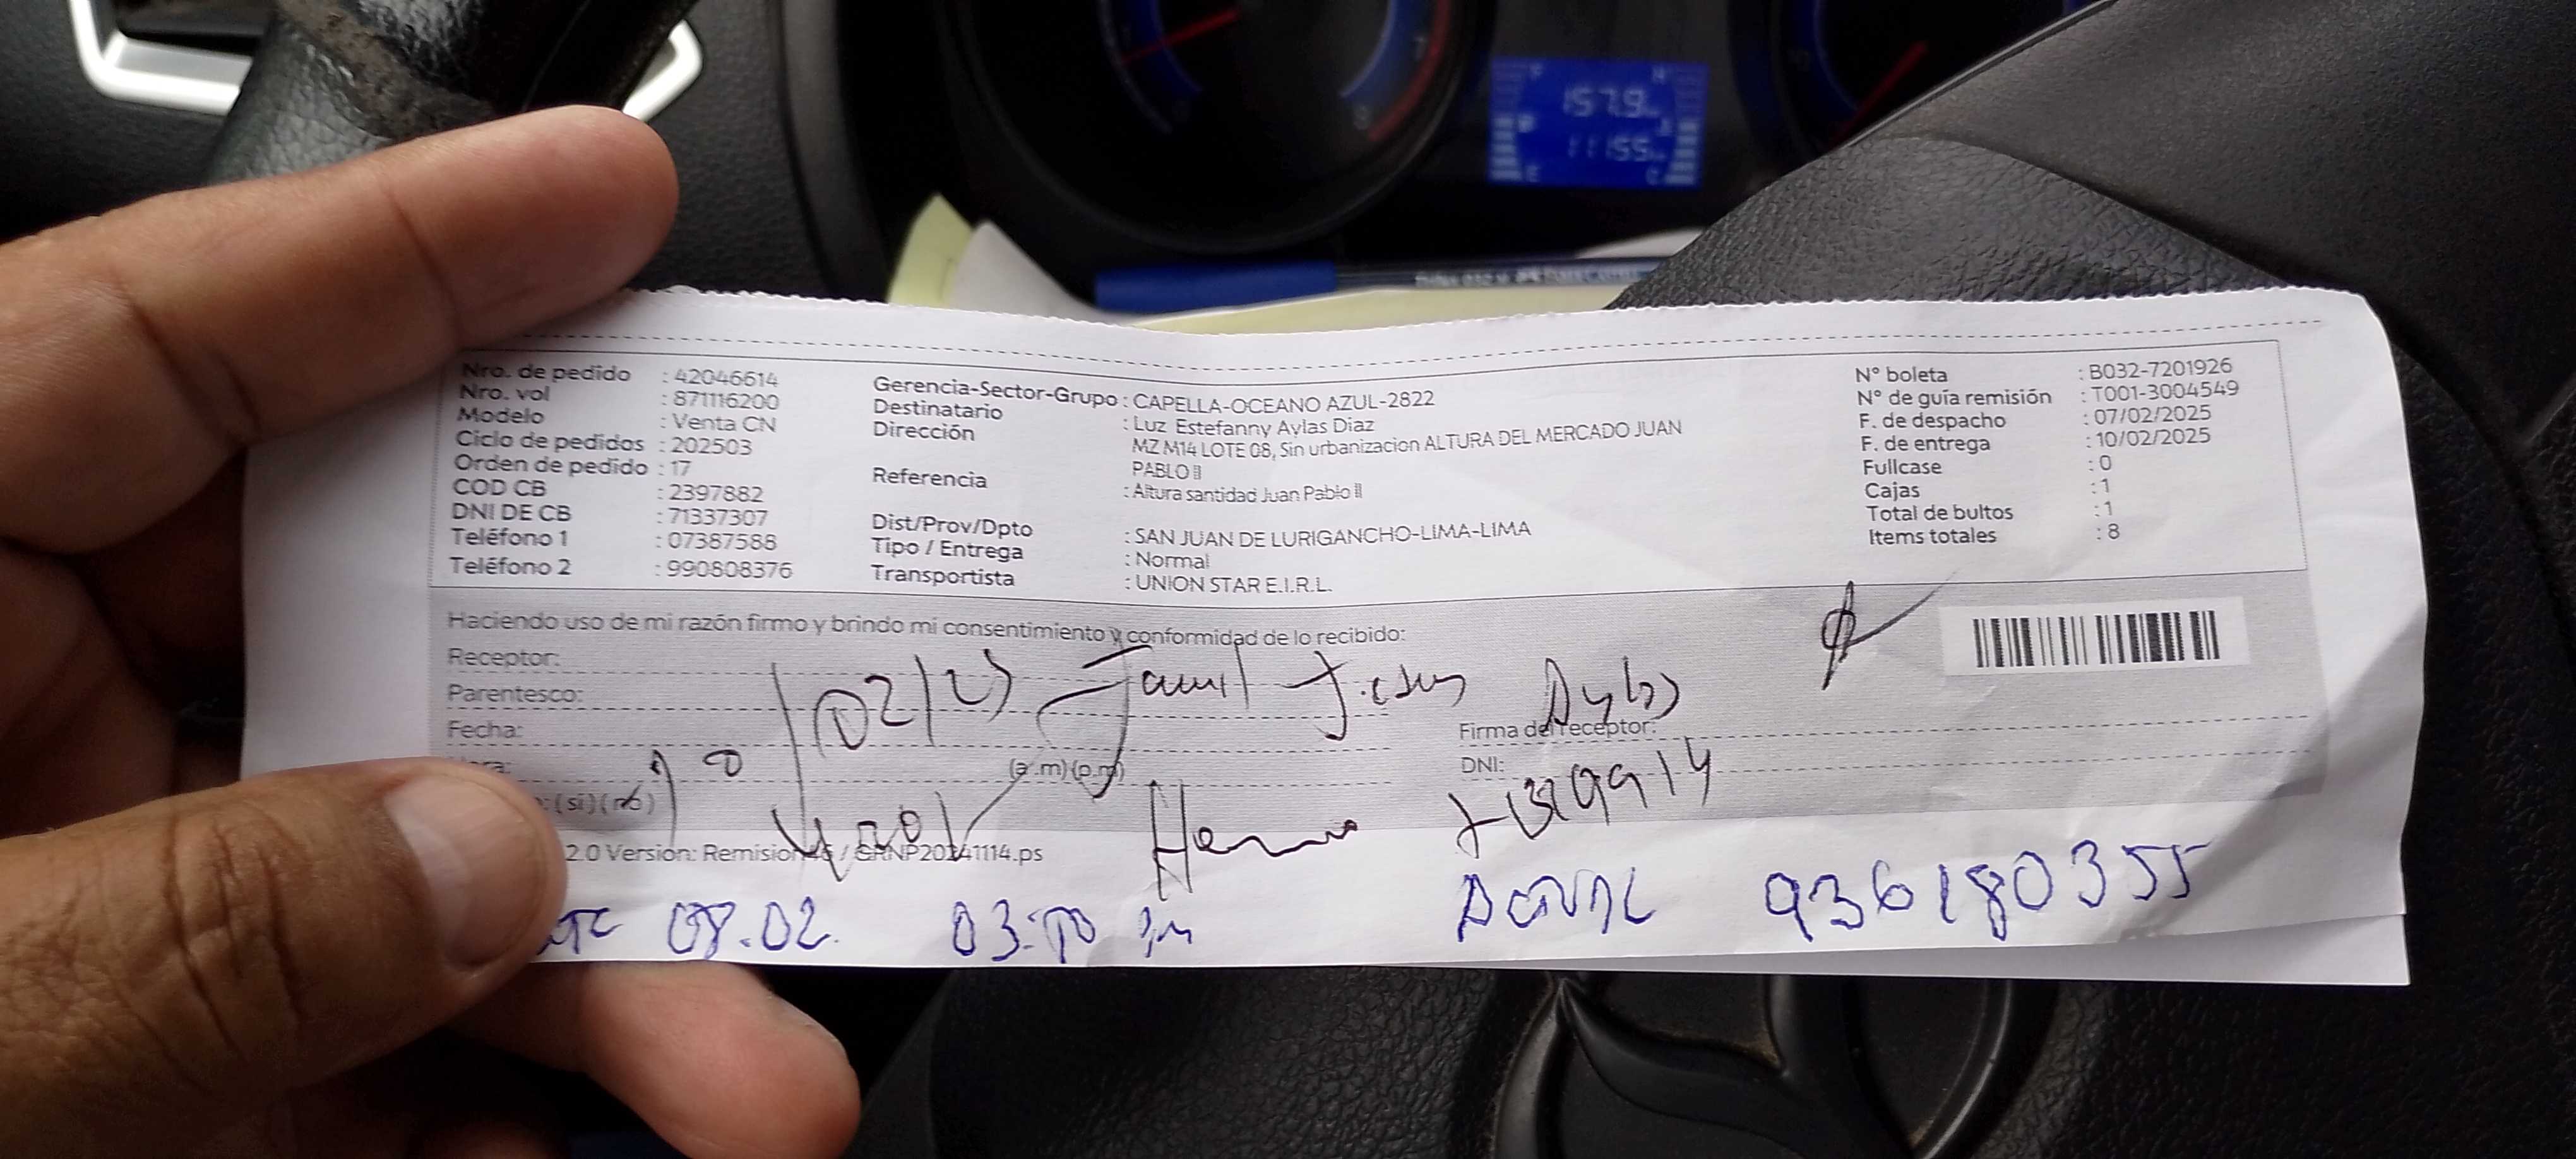 157.9
11155
Nro. de pedido : 42046614
Nro. vol : 871116200
Modelo : Venta CN
Ciclo de pedidos : 202503
Orden de pedido : 17
COD CB : 2397882
DNI DE CB : 71337307
Teléfono 1 : 07387588
Teléfono 2 : 990808376
Gerencia-Sector-Grupo : CAPELLA-OCEANO AZUL-2822
Destinatario : Luz Estefanny Aylas Diaz
Dirección MZ M14 LOTE 08, Sin urbanizacion ALTURA DEL MERCADO JUAN
PABLO II
Referencia : Altura santidad Juan Pablo II
Dist/Prov/Dpto : SAN JUAN DE LURIGANCHO-LIMA-LIMA
Tipo / Entrega : Normal
Transportista : UNION STAR E.I.R.L.
N° boleta : B032-7201926
N° de guía remisión : T001-3004549
F. de despacho : 07/02/2025
F. de entrega : 10/02/2025
Fullcase : 0
Cajas : 1
Total de bultos : 1
Items totales : 8
Haciendo uso de mi razón firmo y brindo mi consentimiento y conformidad de lo recibido:
Receptor:
Parentesco:
Fecha:
(a.m)(p.m)
: (si) (no)
Firma del receptor:
DNI:
Aylas
2.0 Version: Remision / GRNP20241114.ps
08.02. 03:
936180355